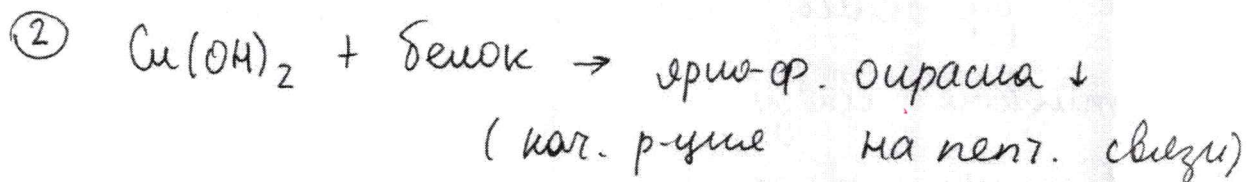 ② Cu(OH)₂ + белок → ярко-ф. окраска ↓
(кач. р-ция на пепт. связи)